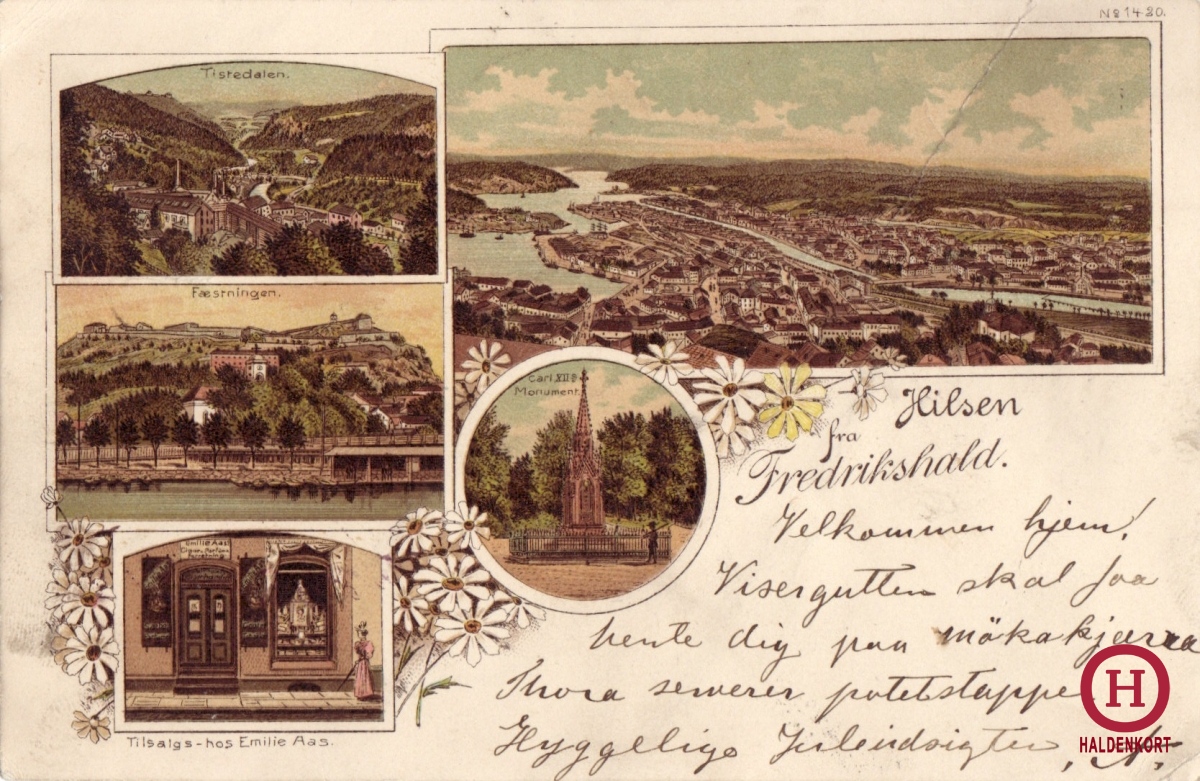 No 1480.
Tistedalen.
Fæstningen.
Carl XII's
Monument.
Emilie Aas
Tilsalgs-hos Emilie Aas.
Hilsen
fra
Fredrikshald.
Velkommen hjem!
Visergutten skal faa
hente dig paa mökakjærra
Thora serverer potetstappe
Hyggelige Juleudsigter,
H
HALDENKORT